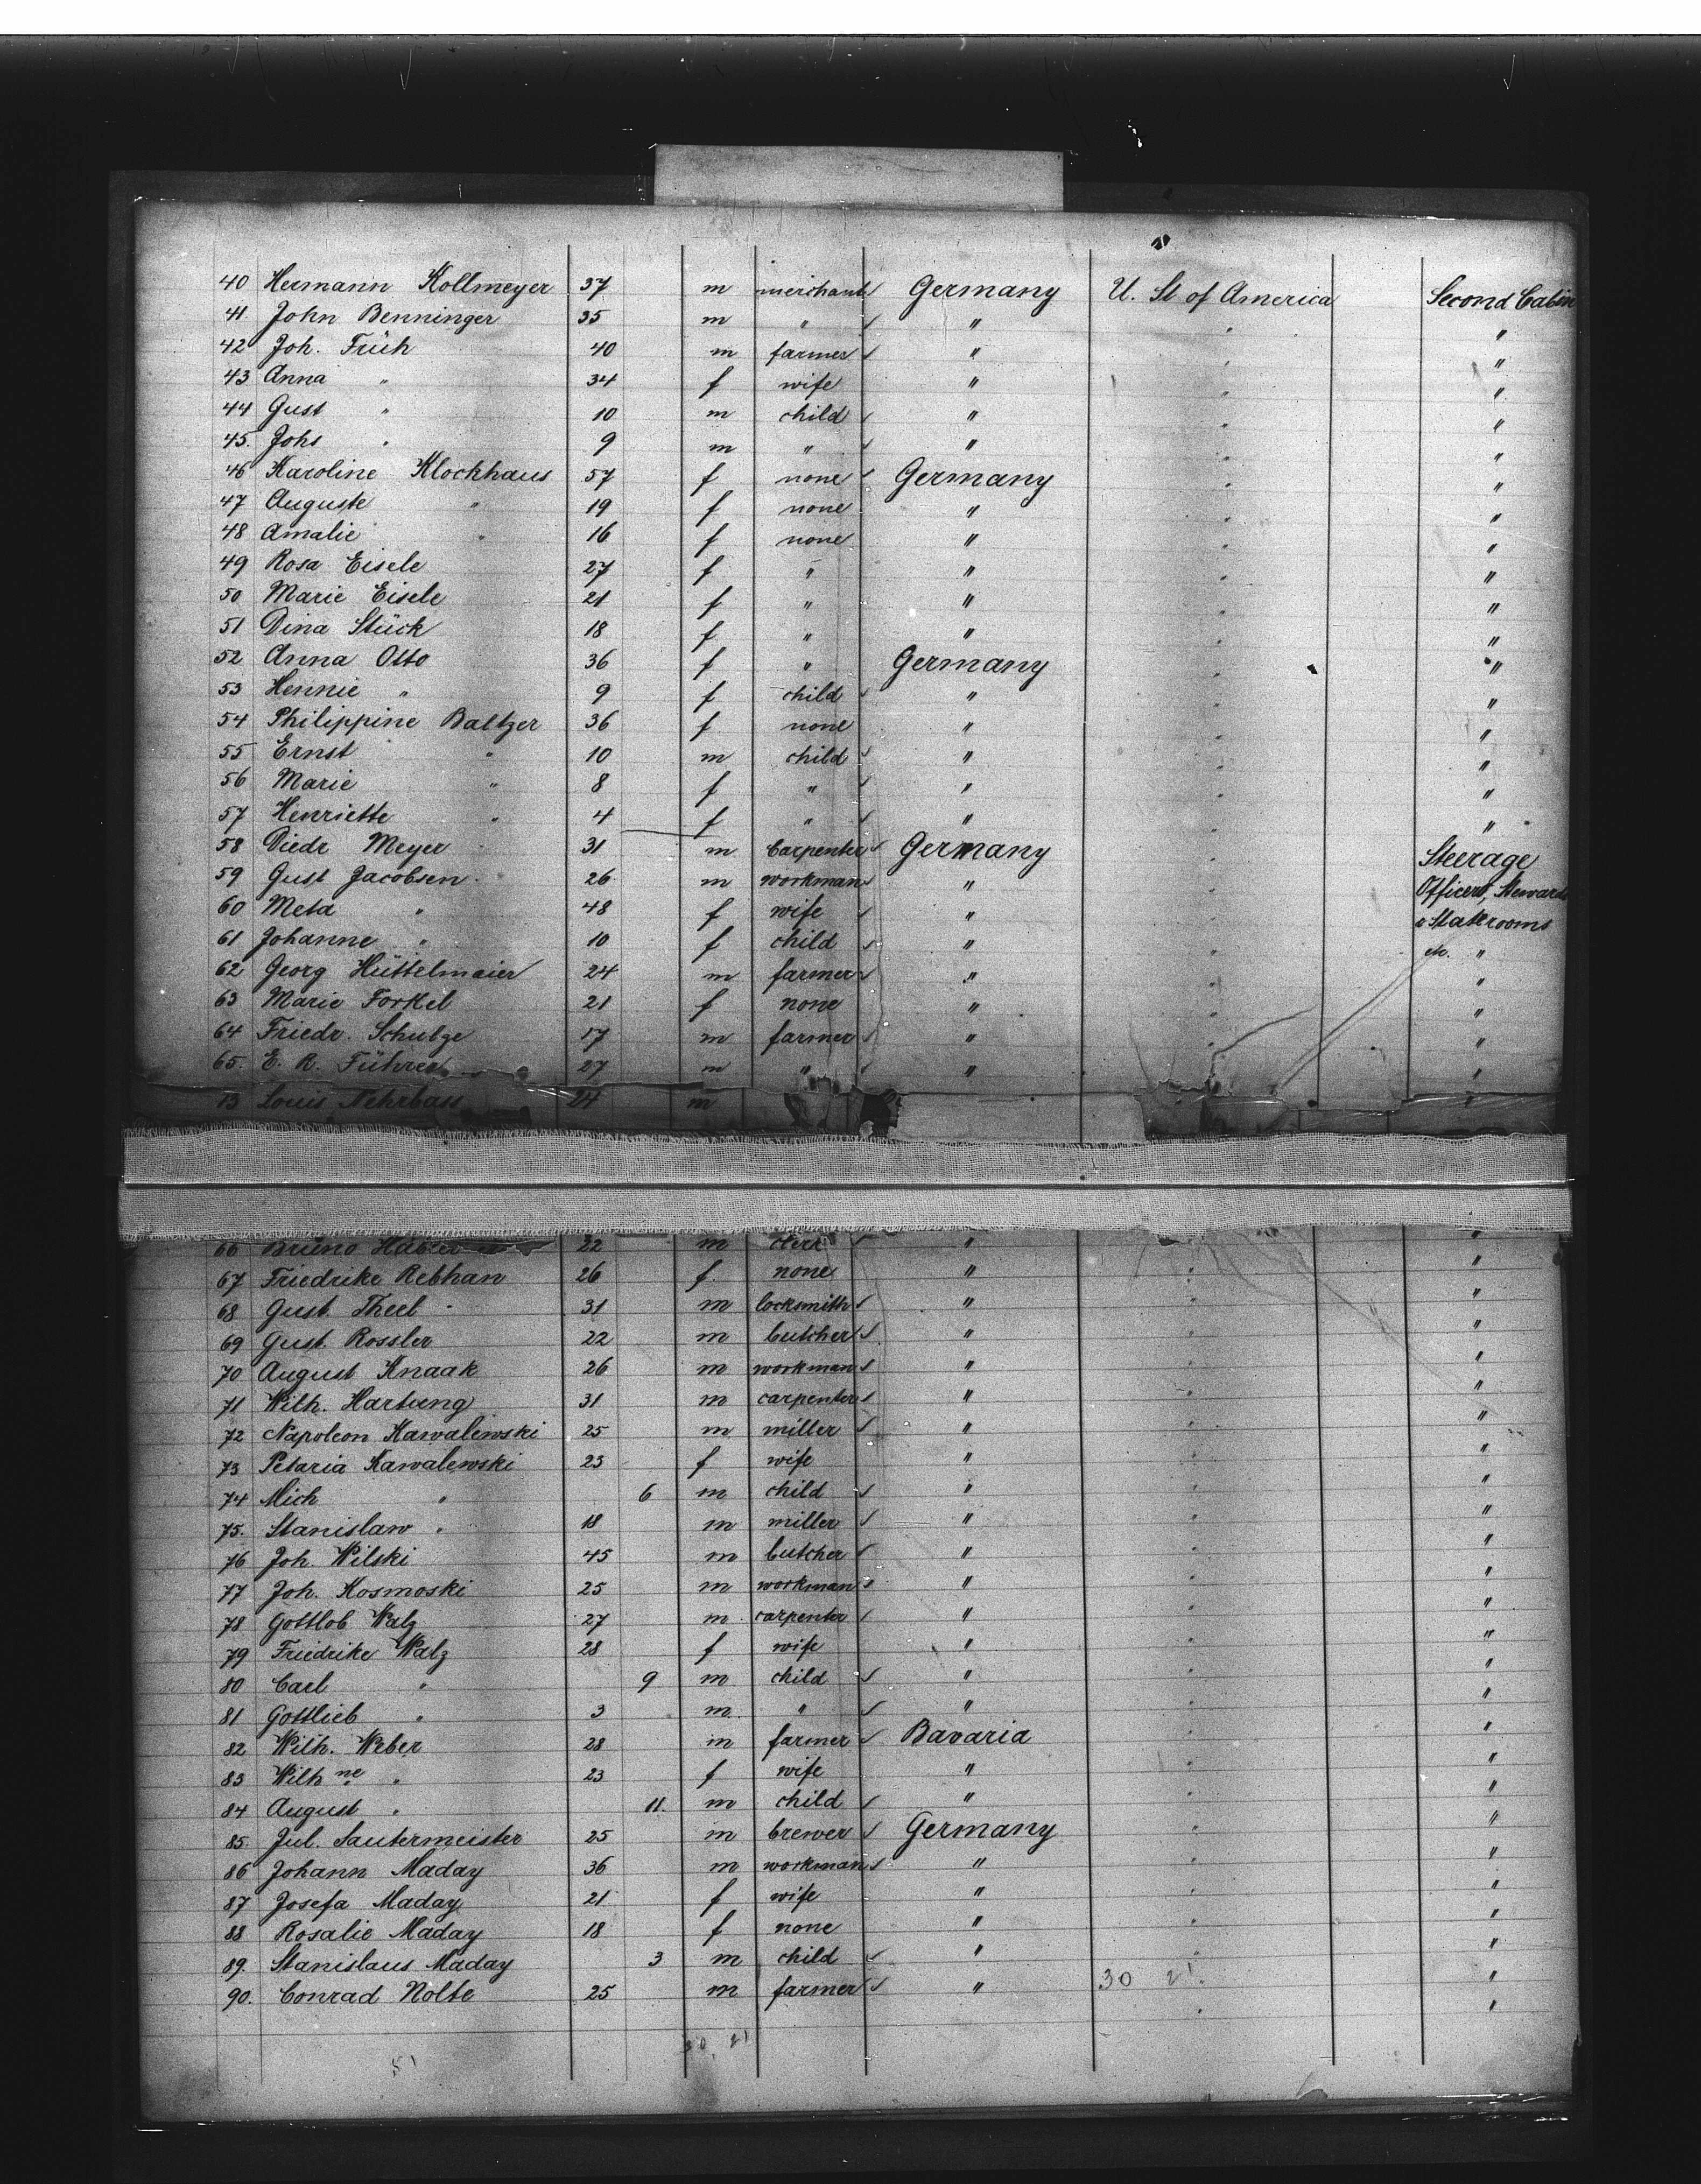 40 Hermann Kollmeyer 37 m merchant Germany U. St of America Second Cabin
41 John Benninger 35 m " " " "
42 Joh. Früh 40 m farmer " " "
43 Anna " 34 f wife " " "
44 Gust " 10 m child " " "
45. Johs " 9 m " " " "
46 Karoline Klockhaus 57 f none Germany " "
47 Auguste " 19 f none " " "
48 Amalie " 16 f none " " "
49 Rosa Eisele 27 f " " " "
50 Marie Eisele 21 f " " " "
51 Dina Stück 18 f " " " "
52 Anna Otto 36 f " Germany " "
53 Hennie " 9 f child " " "
54 Philippine Baltzer 36 f none " " "
55 Ernst " 10 m child " " "
56 Marie " 8 f " " " "
57 Henriette " 4 f " " " "
58 Diedr Meyer 31 m Carpenter Germany " Steerage
59 Gust Jacobsen 26 m workman " " Officers, Stewards
60 Meta " 48 f wife " " a Staterooms
61 Johanne " 10 f child " " etc. "
62 Georg Hüttelmaier 24 m farmer " " "
63 Marie Forkel 21 f none " " "
64 Friedr. Schulze 17 m farmer " " "
65. E. R. Führer 27 m " " " "
13 Louis Nehrbass 24 m "
66 Bruno 22 m clerk " "
67 Friedrike Rebhan 26 f none " " "
68 Gust. Theel 31 m locksmith " " "
69 Gust. Rossler 22 m butcher " " "
70 August Knaak 26 m workman " " "
71 Wilh. Hartung 31 m carpenter " " "
72 Napoleon Kawalewski 25 m miller " " "
73 Petaria Kawalewski 23 f wife " " "
74 Mich " 6 m child " " "
75. Stanislaw " 18 m miller " " "
76 Joh. Wilski 45 m butcher " " "
77 Joh. Kosmoski 25 m workman " " "
78 Gottlob Walz 27 m carpenter " " "
79 Friedrike Walz 28 f wife " " "
80 Carl " 9 m child " " "
81 Gottlieb " 3 m " " " "
82 Wilh. Weber 28 m farmer Bavaria " "
83 Wilhne " 23 f wife " " "
84 August " 11. m child " " "
85. Jul. Sautermeister 25 m brewer Germany " "
86 Johann Maday 36 m workman " " "
87 Josefa Maday 21 f wife " " "
88 Rosalie Maday 18 f none " " "
89. Stanislaus Maday 3 m child " " "
90. Conrad Nolte 25 m farmer " 30 21. "
51 30, 21